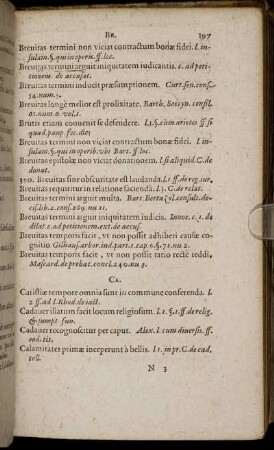 BR. 197
Breuitas termini non viciat contractum bonæ fidei. l. in-
sulam.§. qui in operis. ff. loc.
Breuitas termini arguit iniquitatem iudicantis. c. ad peti-
tionem. de accusat.
Breuitas termini inducit præsumptionem. Curt. sen. cons.
34. num.
Breuitas longè melior est prolixitate. Barth. Socyn. consil.
num. vol. 1.
Brutis etiam conuenit se defendere. l. 1. §. cum arietes ff. si
quad. paup. fec. die:
Breuitas termini non vitiat contractum bonæ fidei. l. in-
sulam. §. qui in operib. vbi Bart. ff. loc.
Breuitas epistolæ non viciat donationem. l. si aliquid. C. de
donat.
Breuitas sine obscuritate est laudanda. l. 1. ff. de reg. iur.
Breuitas requiritur in relatione faciendâ. l. 1. C. de relat.
Breuitas termini arguit multa. Bart. Bertazol. consult. de-
cis. lib. 2. cons. 269. nu.
Breuitas termini arguit iniquitatem iudicis. Innoc. c. 1. de
dilat. c. ad petitionem. ext. de accus.
Breuitas temporis facit, vt non possit adhiberi causæ co-
gnitio. Gilhaus. arbor. ind. part. 1. cap. 6. §. 71. nu 2.
Breuitas temporis facit, vt non possit ratio rectè reddi.
Mascard. de probat. concl. 249. nu 9.
CA.
Caristiæ tempore omnia sunt in commune conferenda. l.
2 ff. ad l. Rhod. de iact.
Cadauer illatum facit locum religiosum. l. 1. §. 1. ff. de relig.
& sumpt. fun.
Cadauer recognoscitur per caput. Alex. l. cum diuersis. ff.
eod. tit.
Calamitates primæ inceperunt à bellis. l. 1. in pr. C. de cad.
toll.
N 3